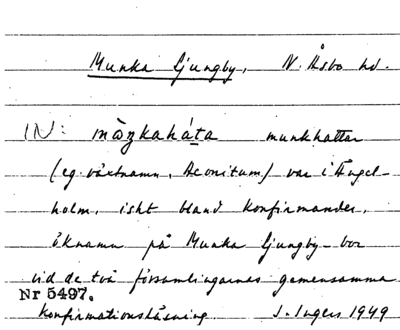 Munka Ljungby, N. Åsbo hd.
IN: màŋkaháta munkhattar
(eg. växtnamn, Aconitum) var i Ängel-
holm, isht bland konfirmander,
öknamn på Munka Ljungby-bor
vid de två församlingarnes gemensamma
Nr 5497.
konfirmationsläsning J. Ingers 1949